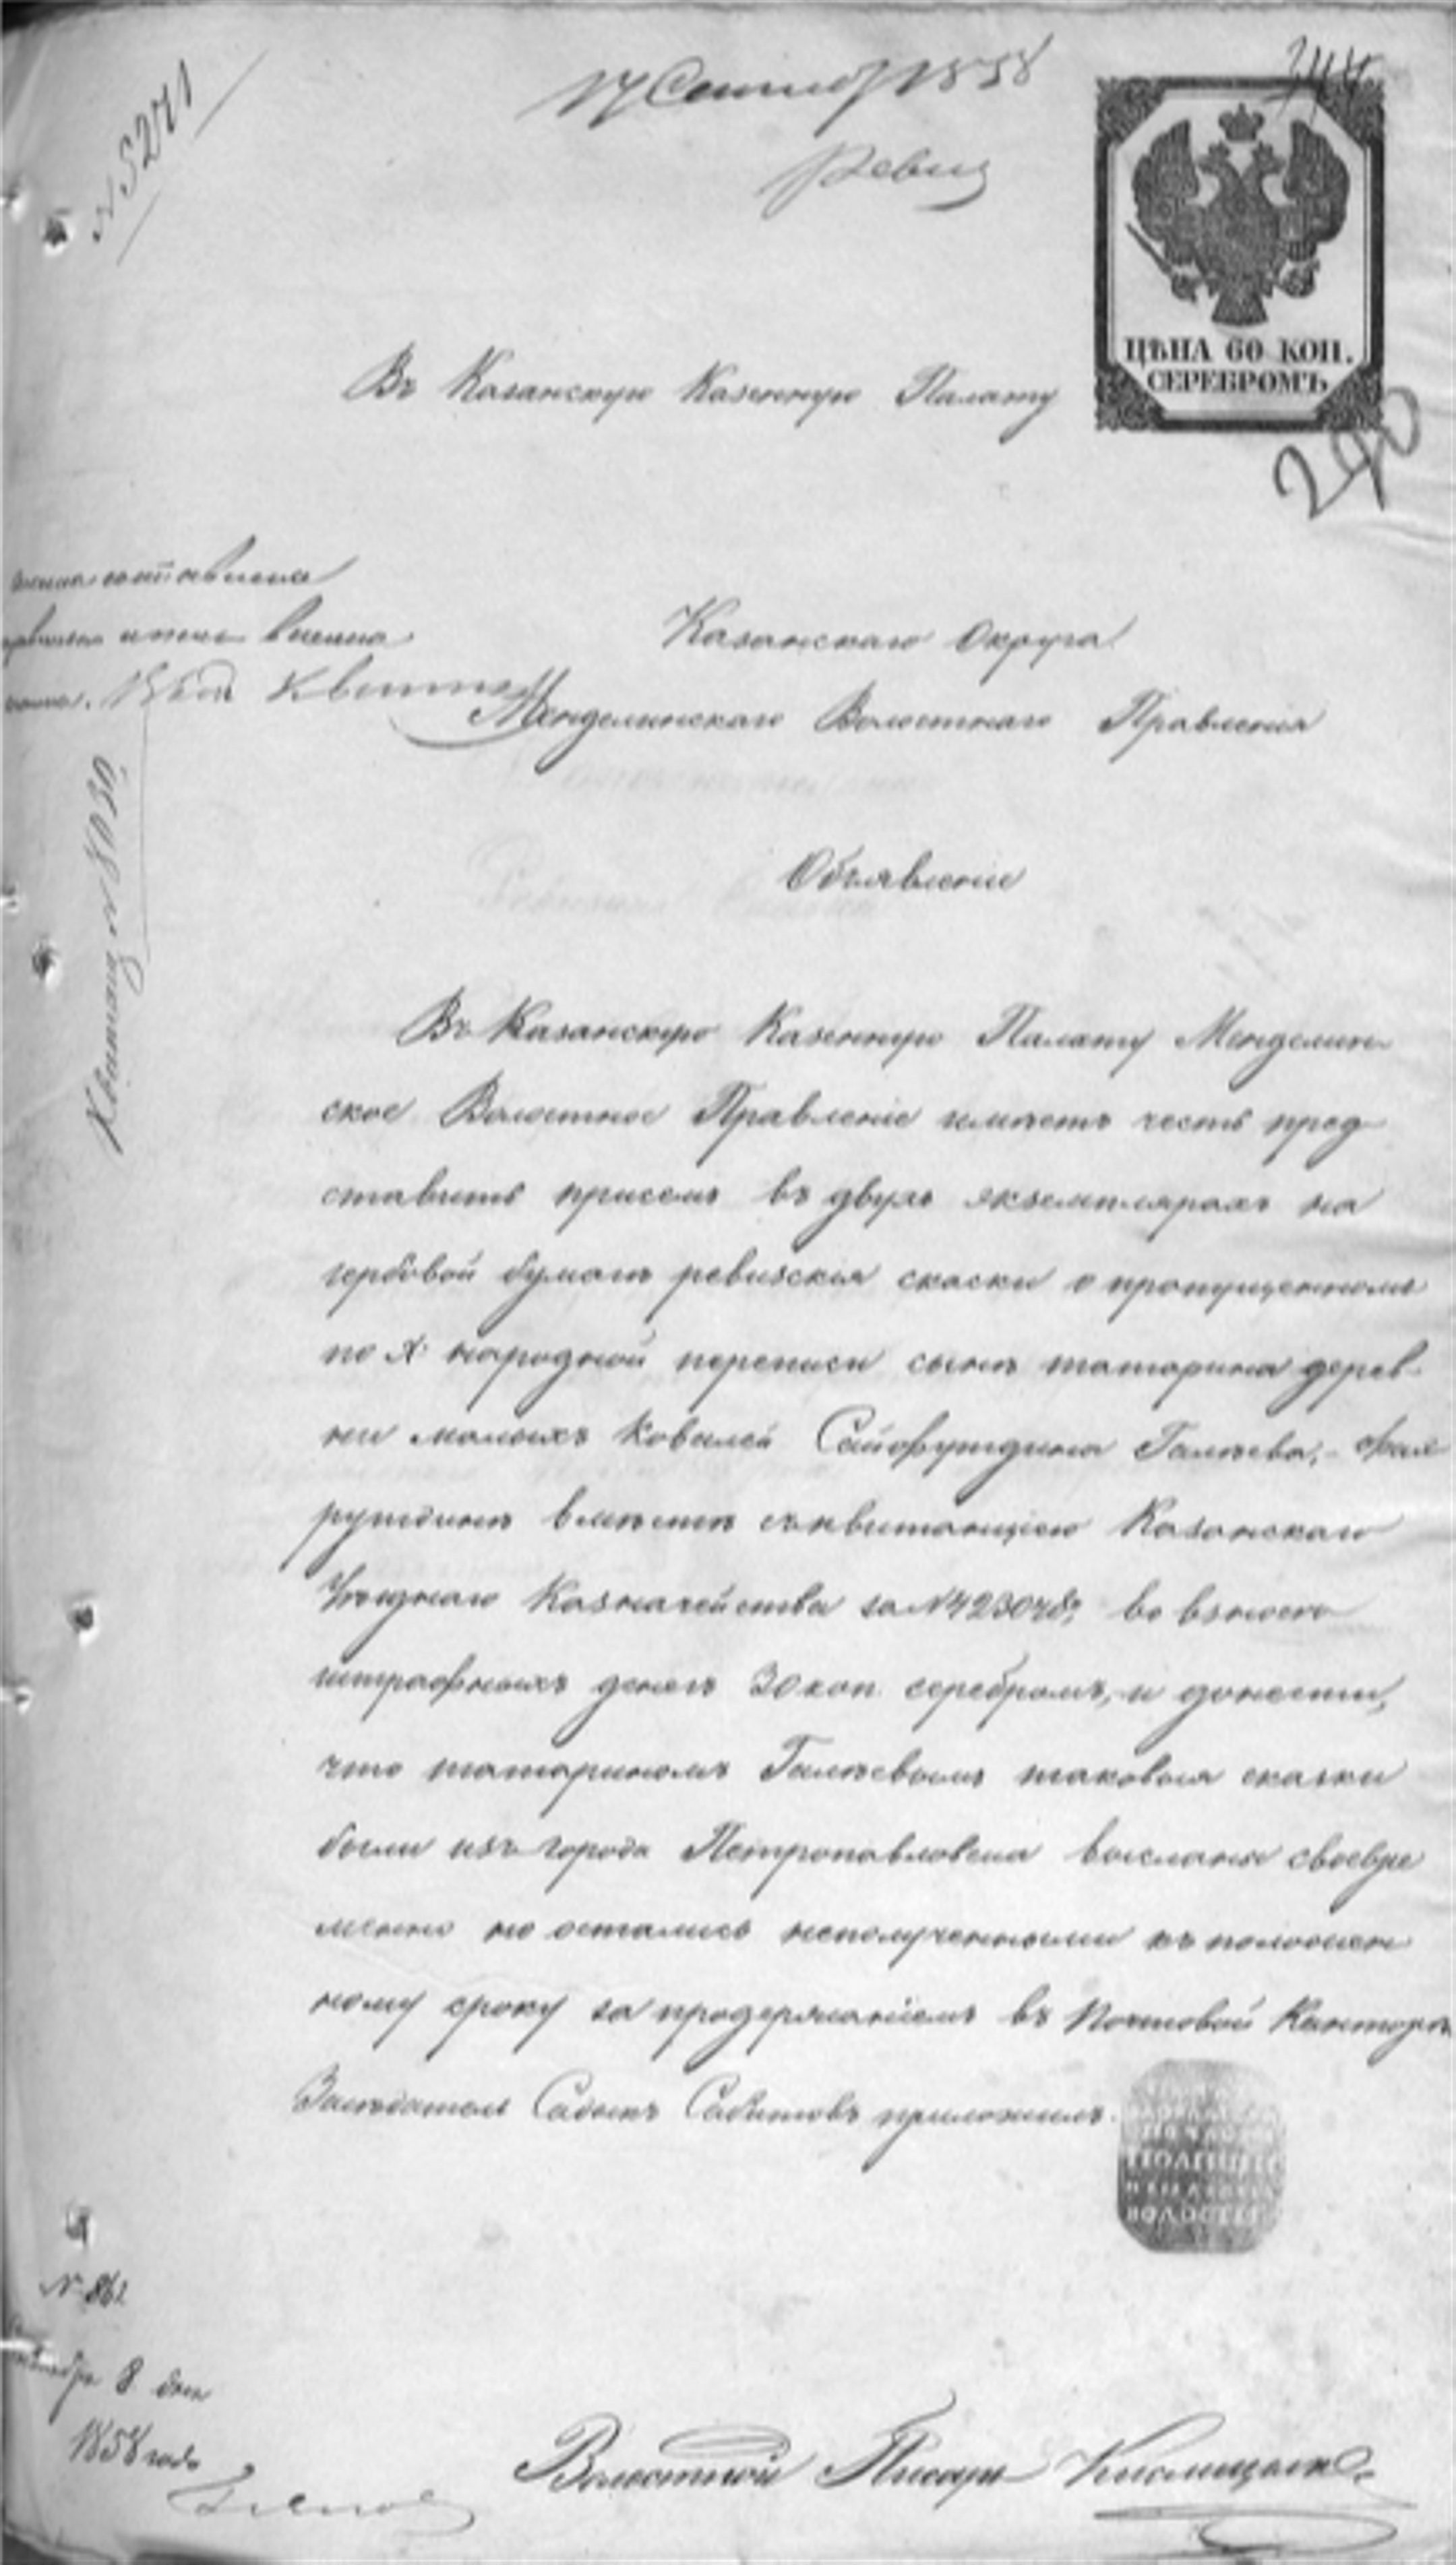 17 Сентяб 1858
ревиз
№ 5271
ЦѢНА 60 КОП.
СЕРЕБРОМЪ
240
Въ Казанскую Казенную Палату
Казанскаго Округа
Менделинскаго Волостнаго Правленія
Квитанц № 8030
Объявленіе
Въ Казанскую Казенную Палату Менделин
ское Волостное Правленіе имѣетъ честь пред
ставить присемъ въ двухъ экземплярахъ на
гербовой бумагѣ ревизскія скаски о пропущенномъ
по X народной переписи сынѣ татарина дерев
ни малыхъ Ковалей Сайфутдина Галѣева, Фах
рутдинѣ вмѣстѣ съ квитанціею Казанскаго
Уѣзднаго Казначейства за № 423048, во взносѣ
штрафныхъ денегъ 30 коп серебромъ, и донести,
что татариномъ Галѣевымъ таковыя сказки
были изъ города Петропавловска высланы своевре
менно но остались неполученными къ положен
ному сроку за продержаніемъ въ Почтовой Канторѣ
Засѣдатель Садыкъ Сабитовъ приложилъ.
№ 861
8 дня
1858 года
Волостной Писарь Кислицынъ